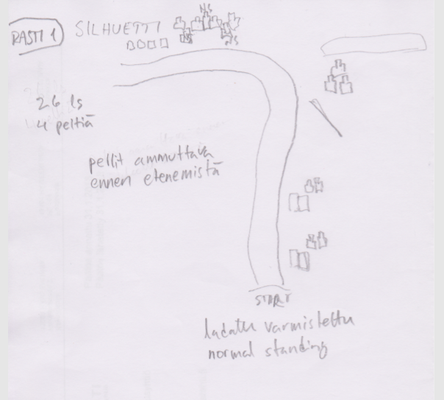 RASTI 1
SILHUETTI
NS
NS
26 ls
4 peltiä
pellit ammuttava
ennen etenemistä
START
ladattu varmistettu
normal standing